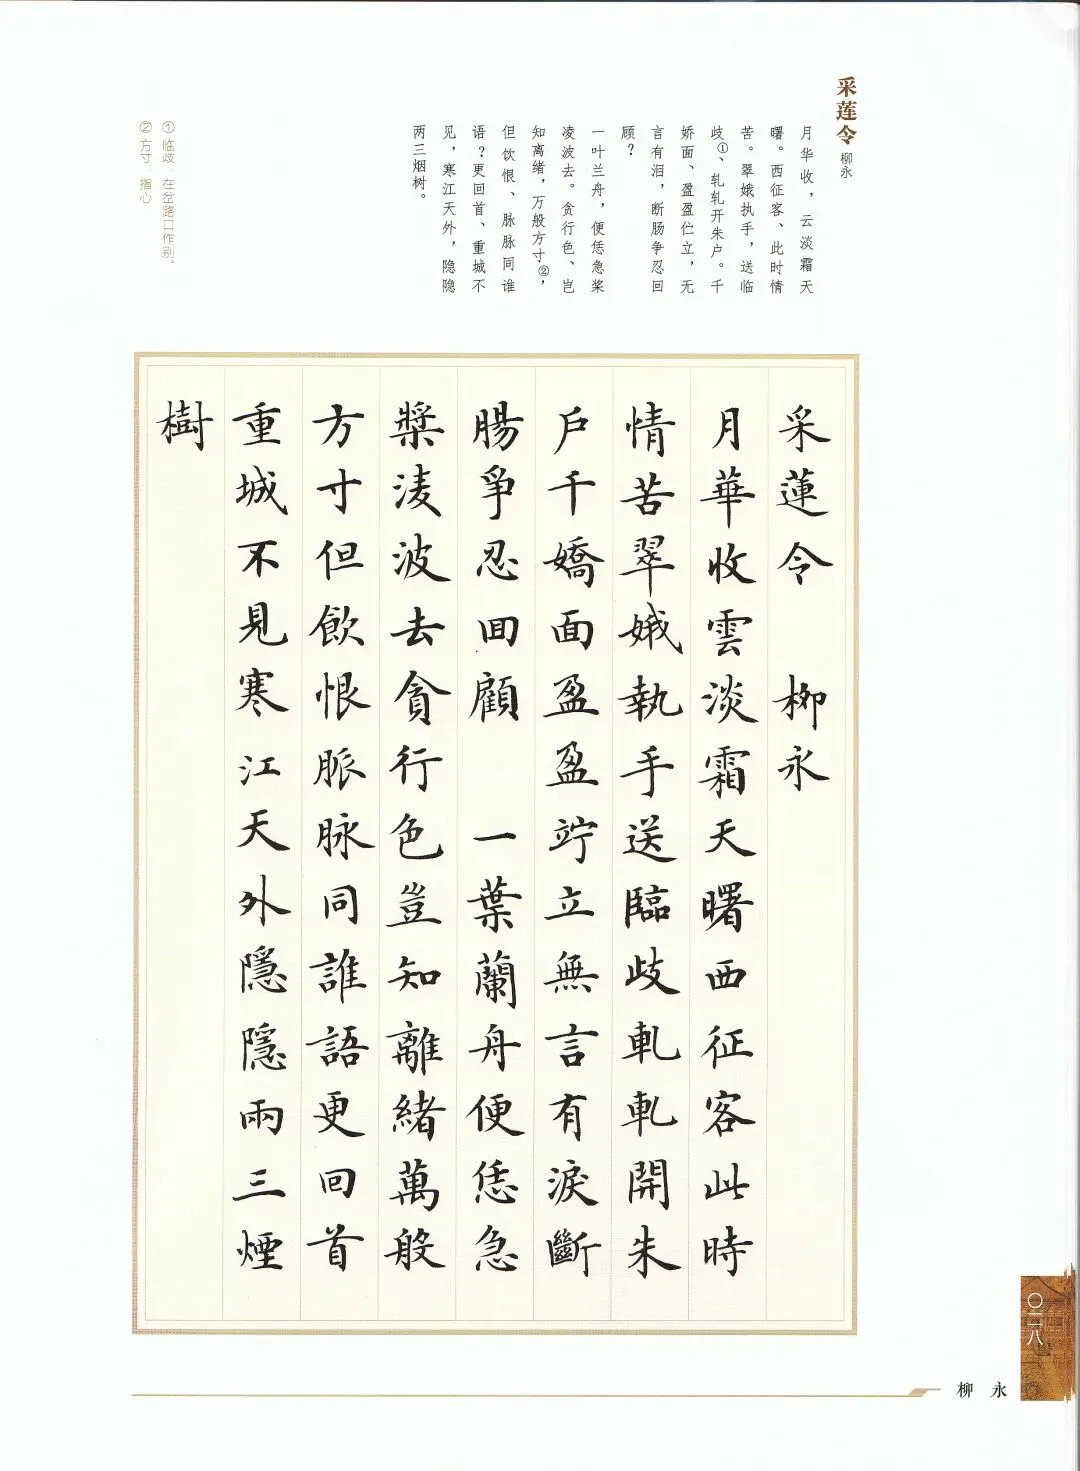 采莲令
柳永
月华收，云淡霜天
曙。西征客、此时情
苦。翠娥执手，送临
歧①、轧轧开朱户。千
娇面、盈盈伫立，无
言有泪，断肠争忍回
顾？
一叶兰舟，便恁急桨
凌波去。贪行色、岂
知离绪，万般方寸②，
但饮恨、脉脉同谁
语？更回首、重城不
见，寒江天外，隐隐
两三烟树。
① 临歧：在岔路口作别。
② 方寸：指心
采蓮令 柳永
月華收雲淡霜天曙西征客此時
情苦翠娥執手送臨歧軋軋開朱
戶千嬌面盈盈竚立無言有淚斷
腸爭忍回顧 一葉蘭舟便恁急
槳淩波去貪行色豈知離緒萬般
方寸但飲恨脈脉同誰語更回首
重城不見寒江天外隱隱兩三煙
樹
〇二八
柳永